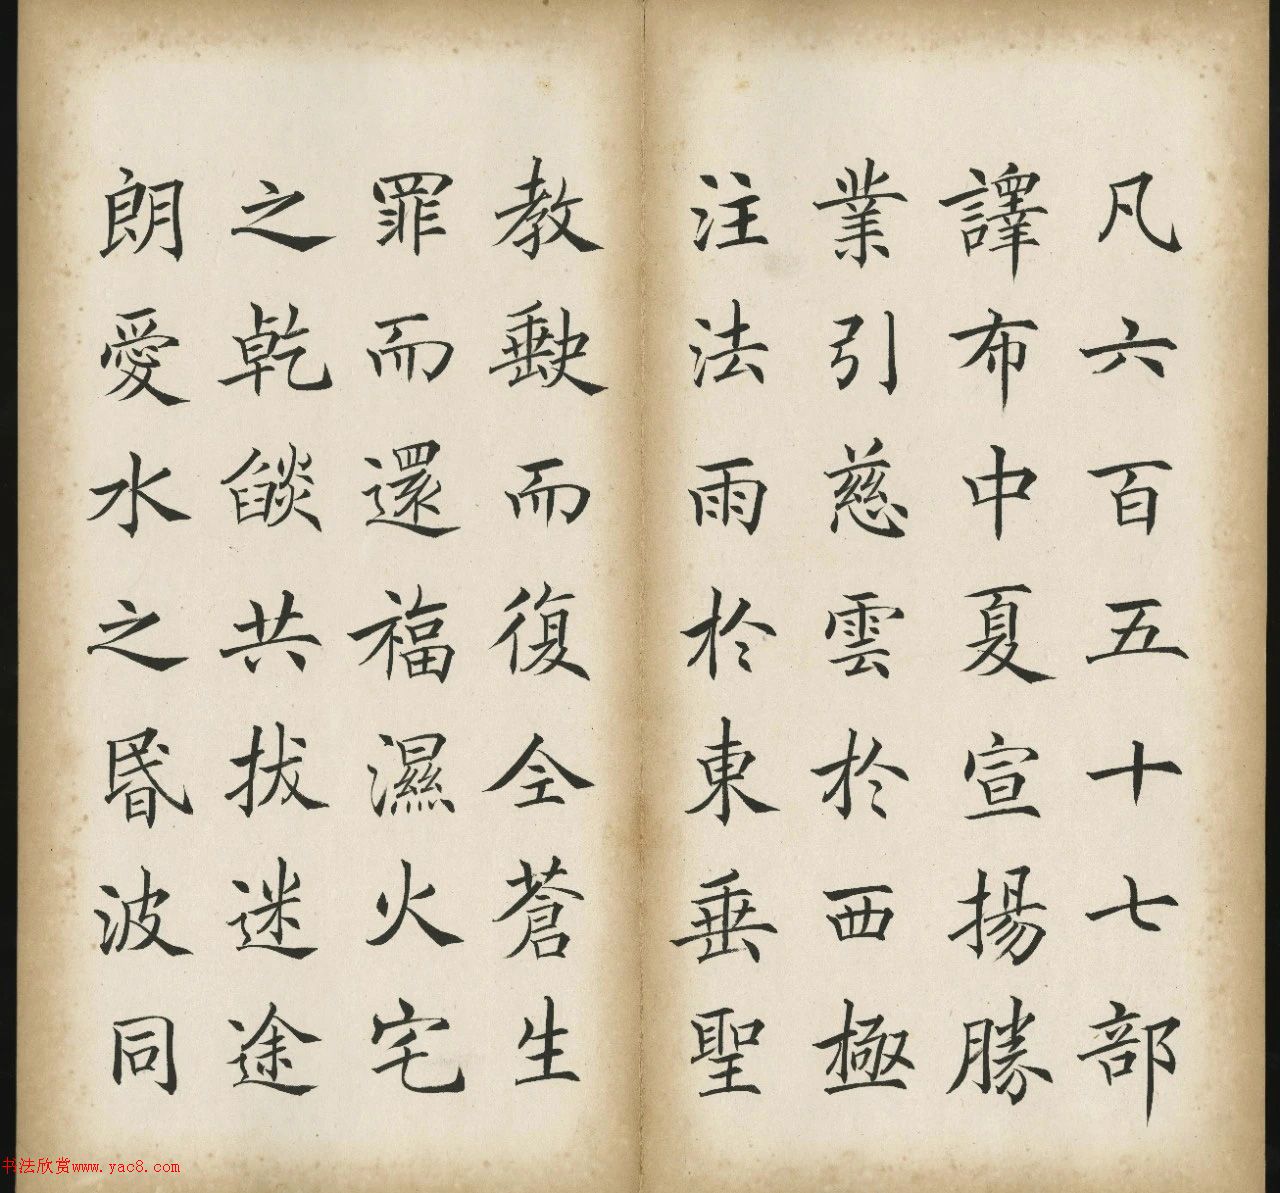 凡六百五十七部
譯布中夏宣揚勝
業引慈雲於西極
注法雨於東垂聖
教缺而復全蒼生
罪而還福濕火宅
之乾燄共拔迷途
朗愛水之昬波同
书法欣赏www.yac8.com